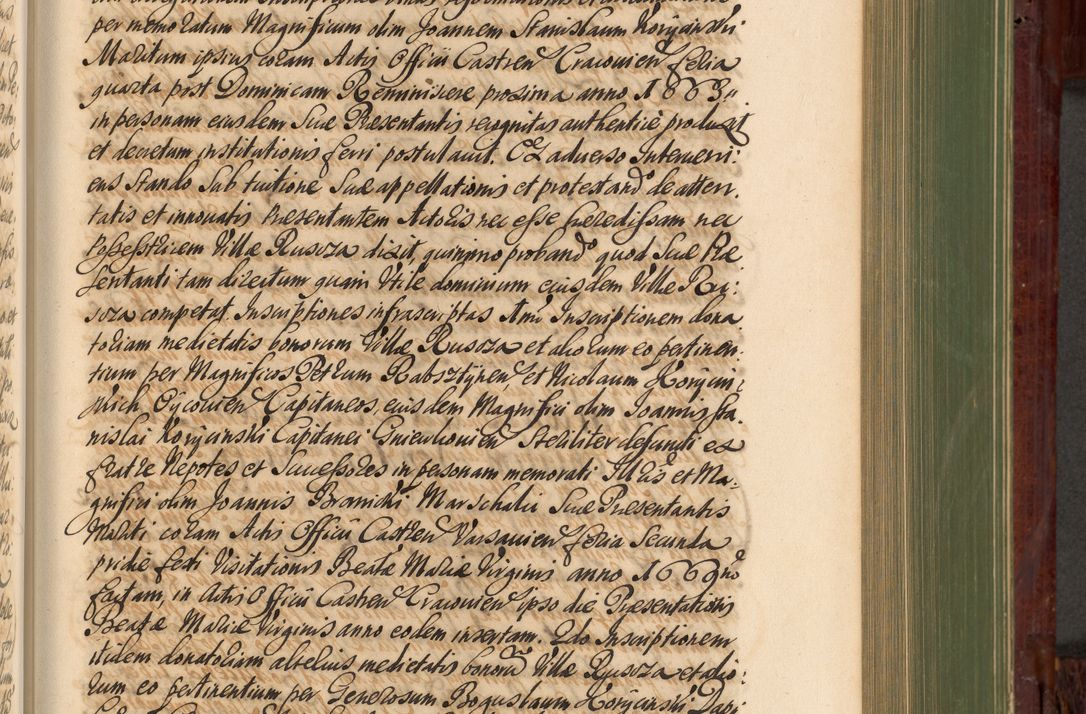 per memoratum Magnificum olim Joannem Stanislaum Korycinski
Maritum ipsius coram Actis Officii Castren Cracovien feria
quarta post Dominicam Reminiscere proxima anno 1663
in personam eiusdem Suae Praesentantis recognitas authentice produxit
et decretum institutionis ferri postulavit. Ex adverso Interveni:
ens Stando Sub tuitione Suae appellationis et protestando de atten:
tatis et innovatis Praesentantem Actoris nec esse haeredissam nec
Possestricem Villae Rusocza dixit, quinimo probando quod Suae Prae
sentanti tam directum quam Utile dominium eiusdem Villae Ru:
socza competat. Inscriptiones infrascriptas Imo Inscriptionem dona
toriam medietatis bonorum Villae Rusocza et aliorum eo pertinen
tium per Magnificos Petrum Rabsztynen, et Nicolaum Korycin:
Oycovien Capitaneos, eiusdem Magnifici olim Joannis Sta
nislai Korycinski Capitanei Gniewkovien Steriliter defuncti ex
fratre Nepotes et Successores in personam memorati Illris et Ma:
gnifici olim Joannis Branicki Marschalci Suae Praesentantis
Mariti coram Actis Officii Castren Varsavien feria Secunda
pridie festi Visitationis Beatae Mariae Virginis anno 1669no
factam, in Actis Officii Castren Cracovien ipso die Praesentationis
Beatae Mariae Virginis anno eodem insertam. 2do Inscriptionem
itidem donatoriam alterius medietatis bonorum Villae Rusocza et alio:
rum eo pertinentium per Generosum Boguslaum Korycinski Dapi